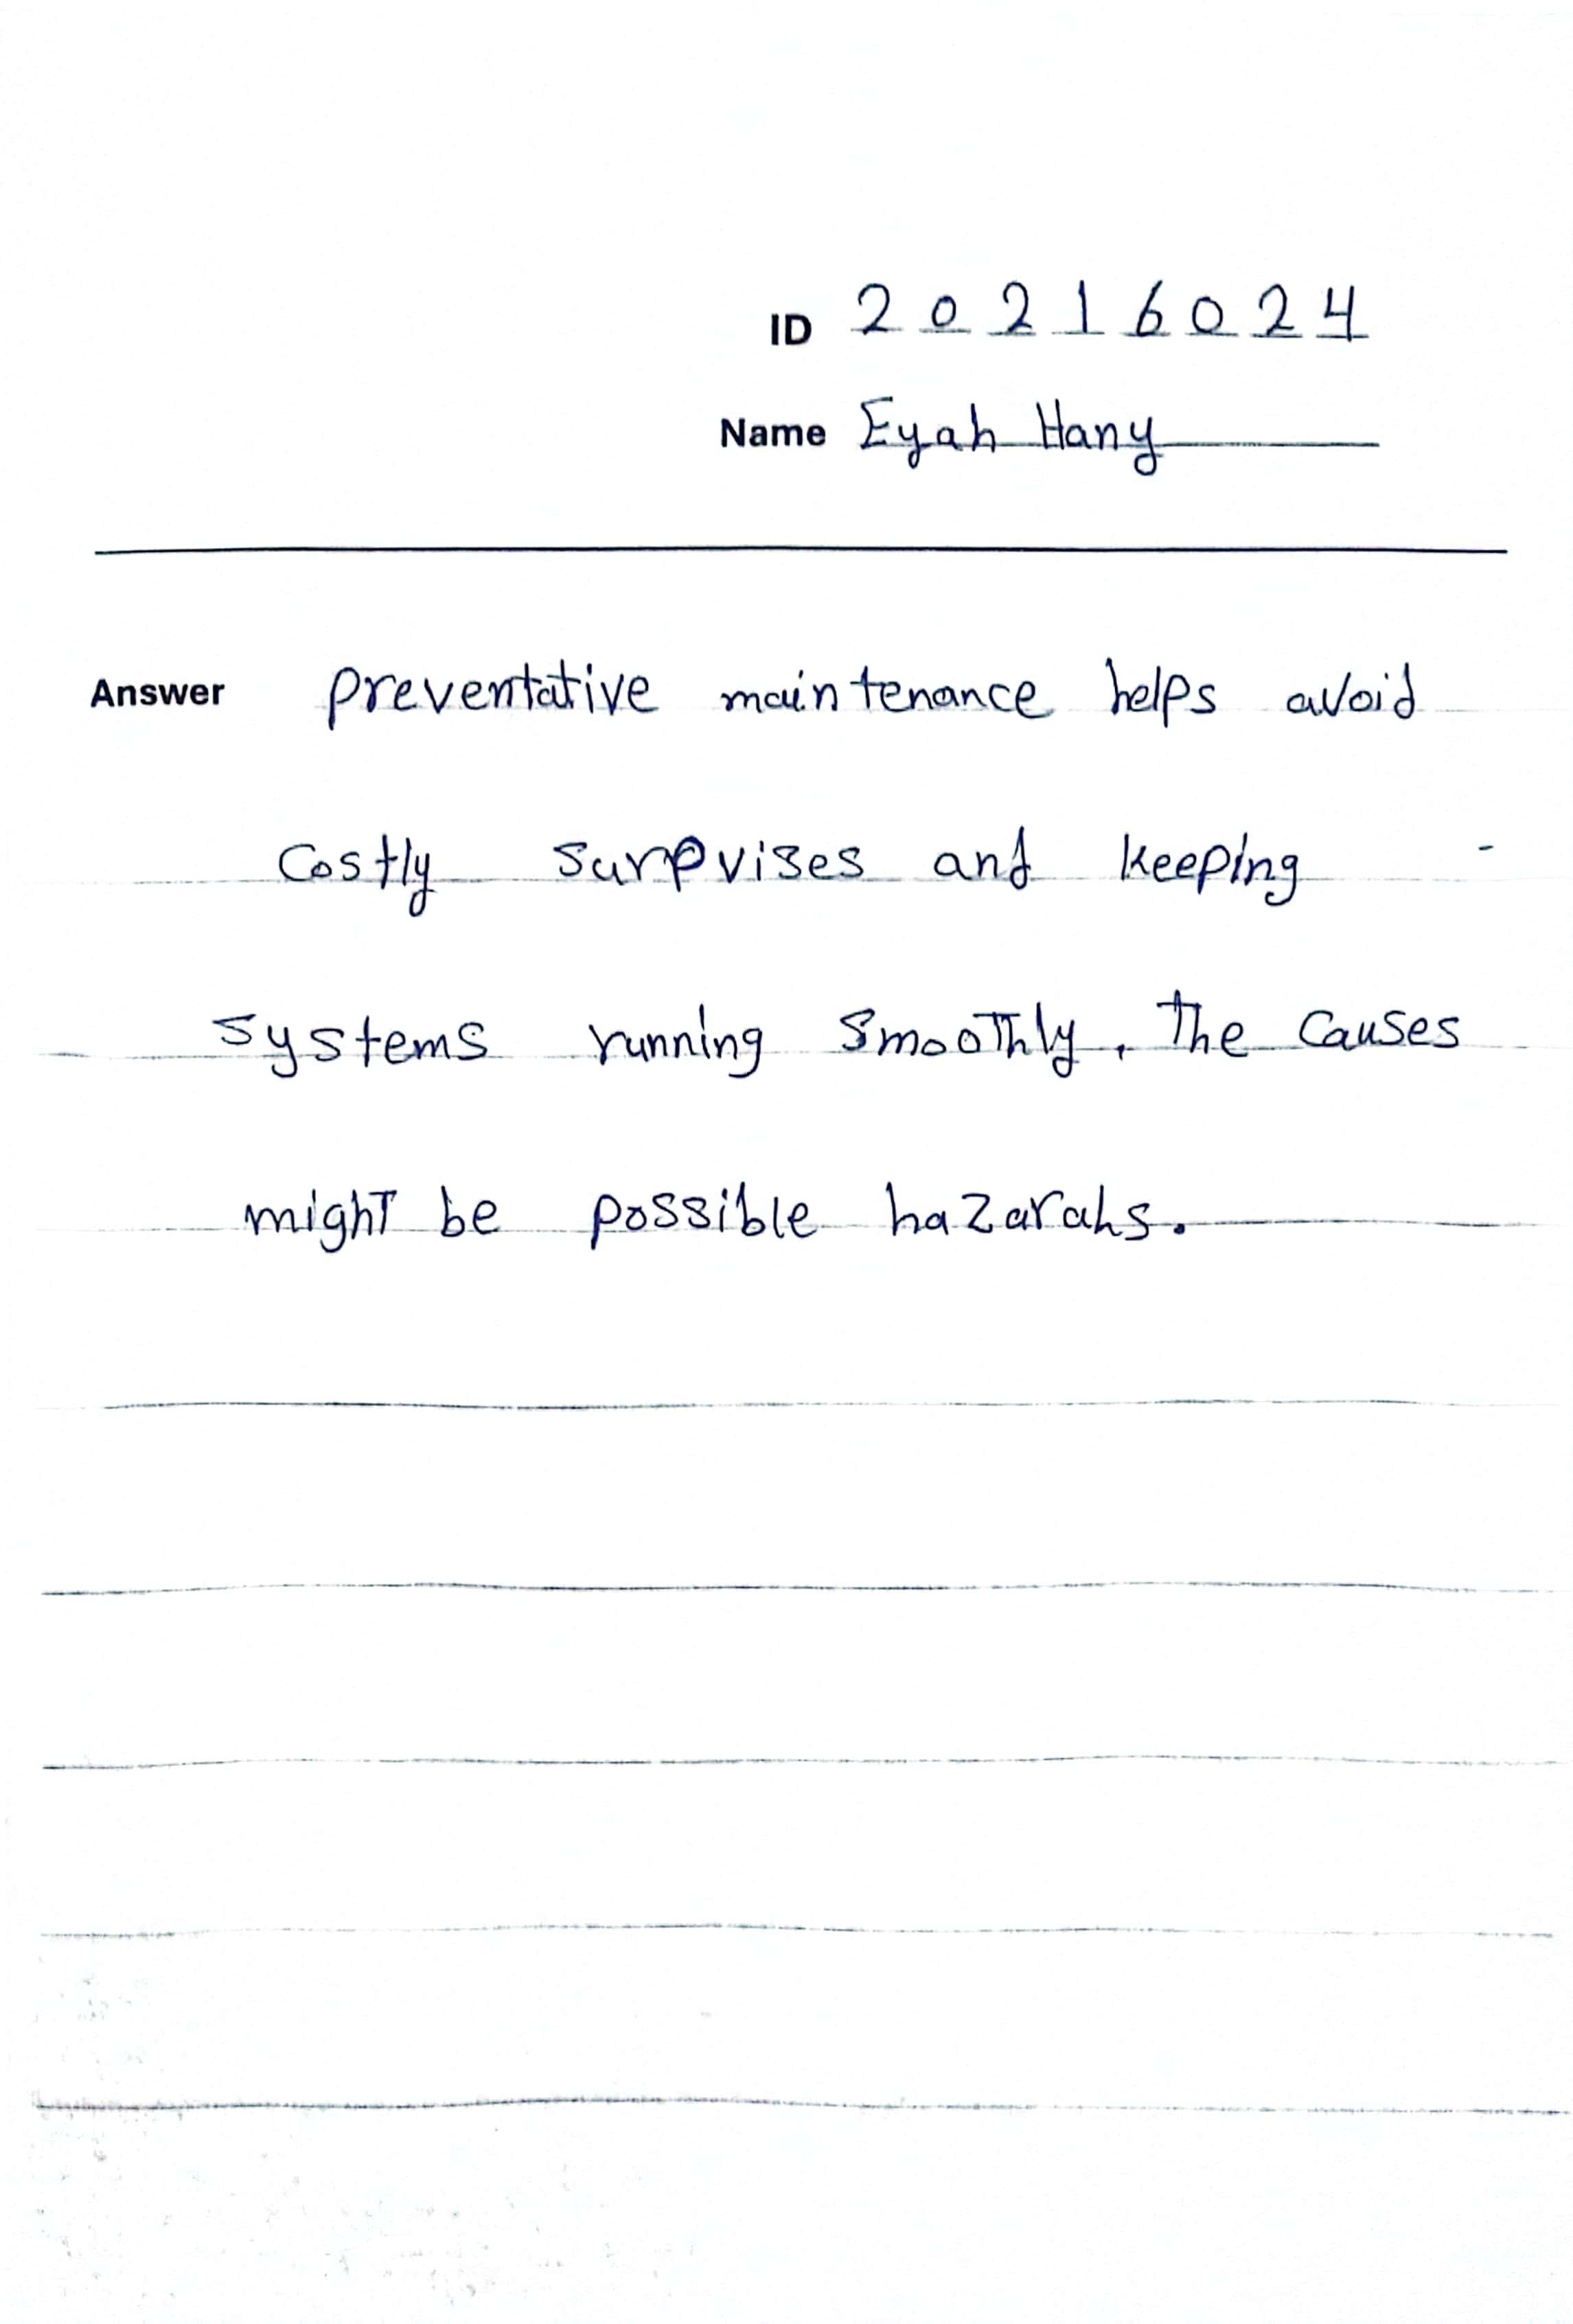 ID 20216024
Name Eyah Hany
Answer preventative maintenance helps avoid
costly surprises and keeping
systems running smoothly. The causes
might be possible hazarahs.